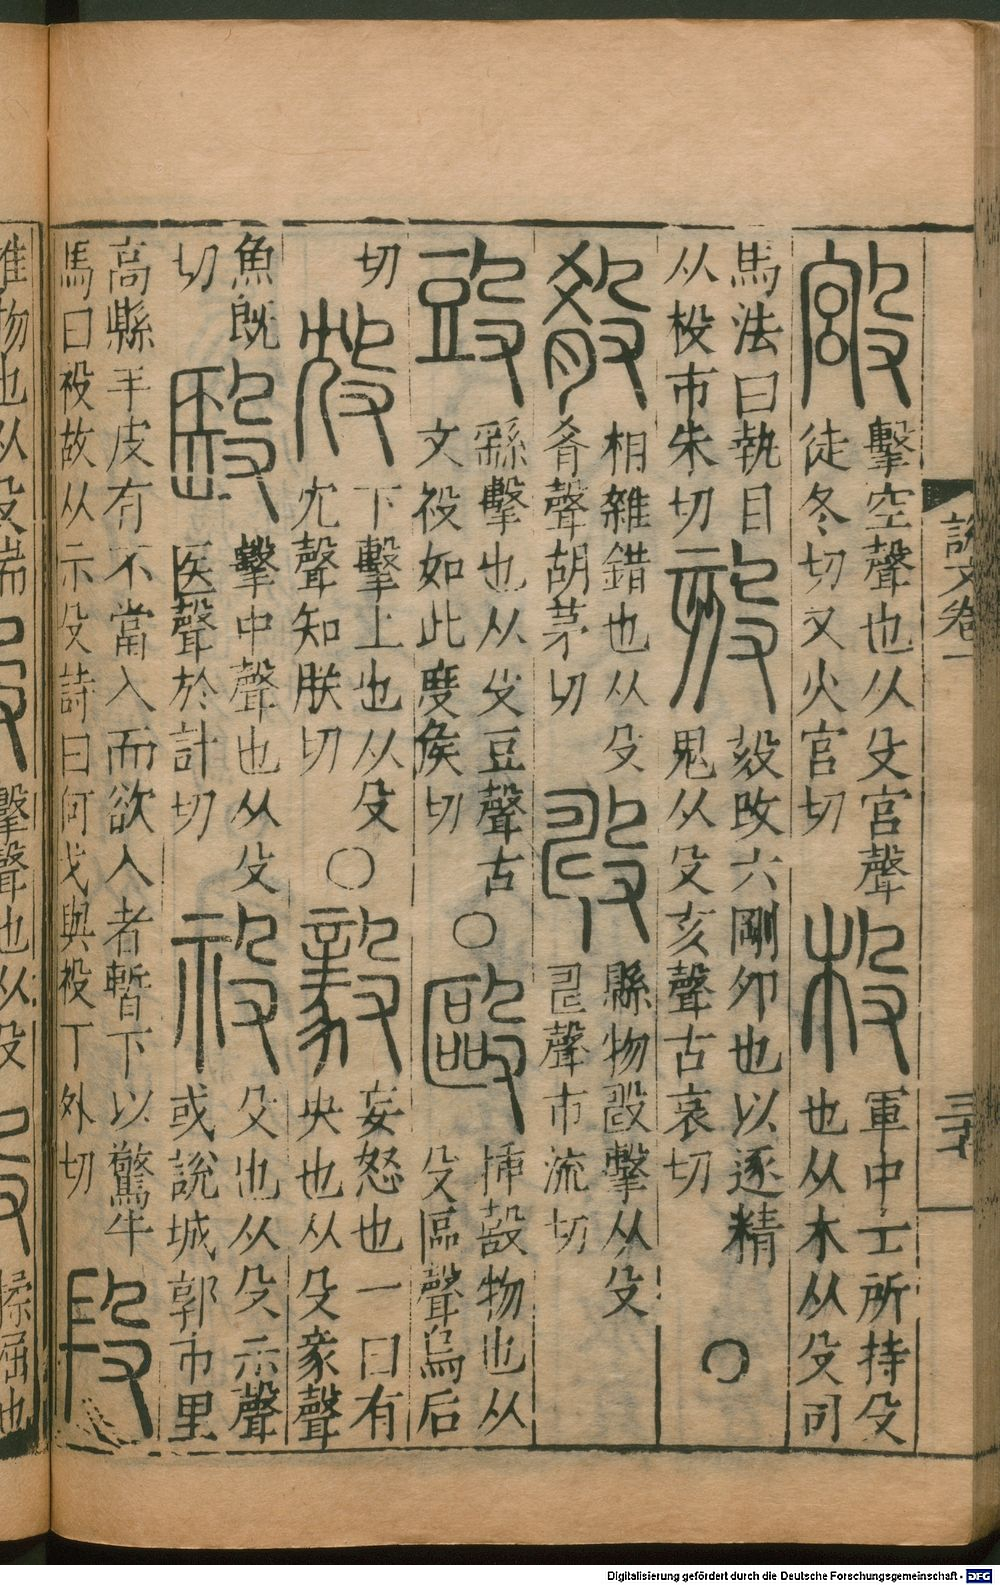 說文卷一
三十
𣪯 擊空聲也从殳宮聲
徒冬切又火宫切
杸 軍中士所持殳
也从木从殳司
馬法曰執目
从杸市朱切
㱾 㱾攺六剛卯也以逐精
鬼从殳亥聲古哀切 ○
殽 相雜錯也从殳
肴聲胡茅切
縣物㱿擊从殳
聲市流切
𣪌 繇擊也从殳豆聲古
文祋如此度侯切 ○
毆 捶毄物也从
殳區聲烏后
切
㱽 下擊上也从殳
冘聲知朕切 ○
毅 妄怒也一曰有
決也从殳豙聲
魚既
切
殹 擊中聲也从殳
医聲於計切
祋 殳也从殳示聲
或說城郭市里
高縣羊皮有不當入而欲入者暫下以驚牛
馬曰祋故从示殳詩曰何戈與祋丁外切
段
椎物也从殳耑
擊聲也从殳
揉屈也
Digitalisierung gefördert durch die Deutsche Forschungsgemeinschaft - DFG